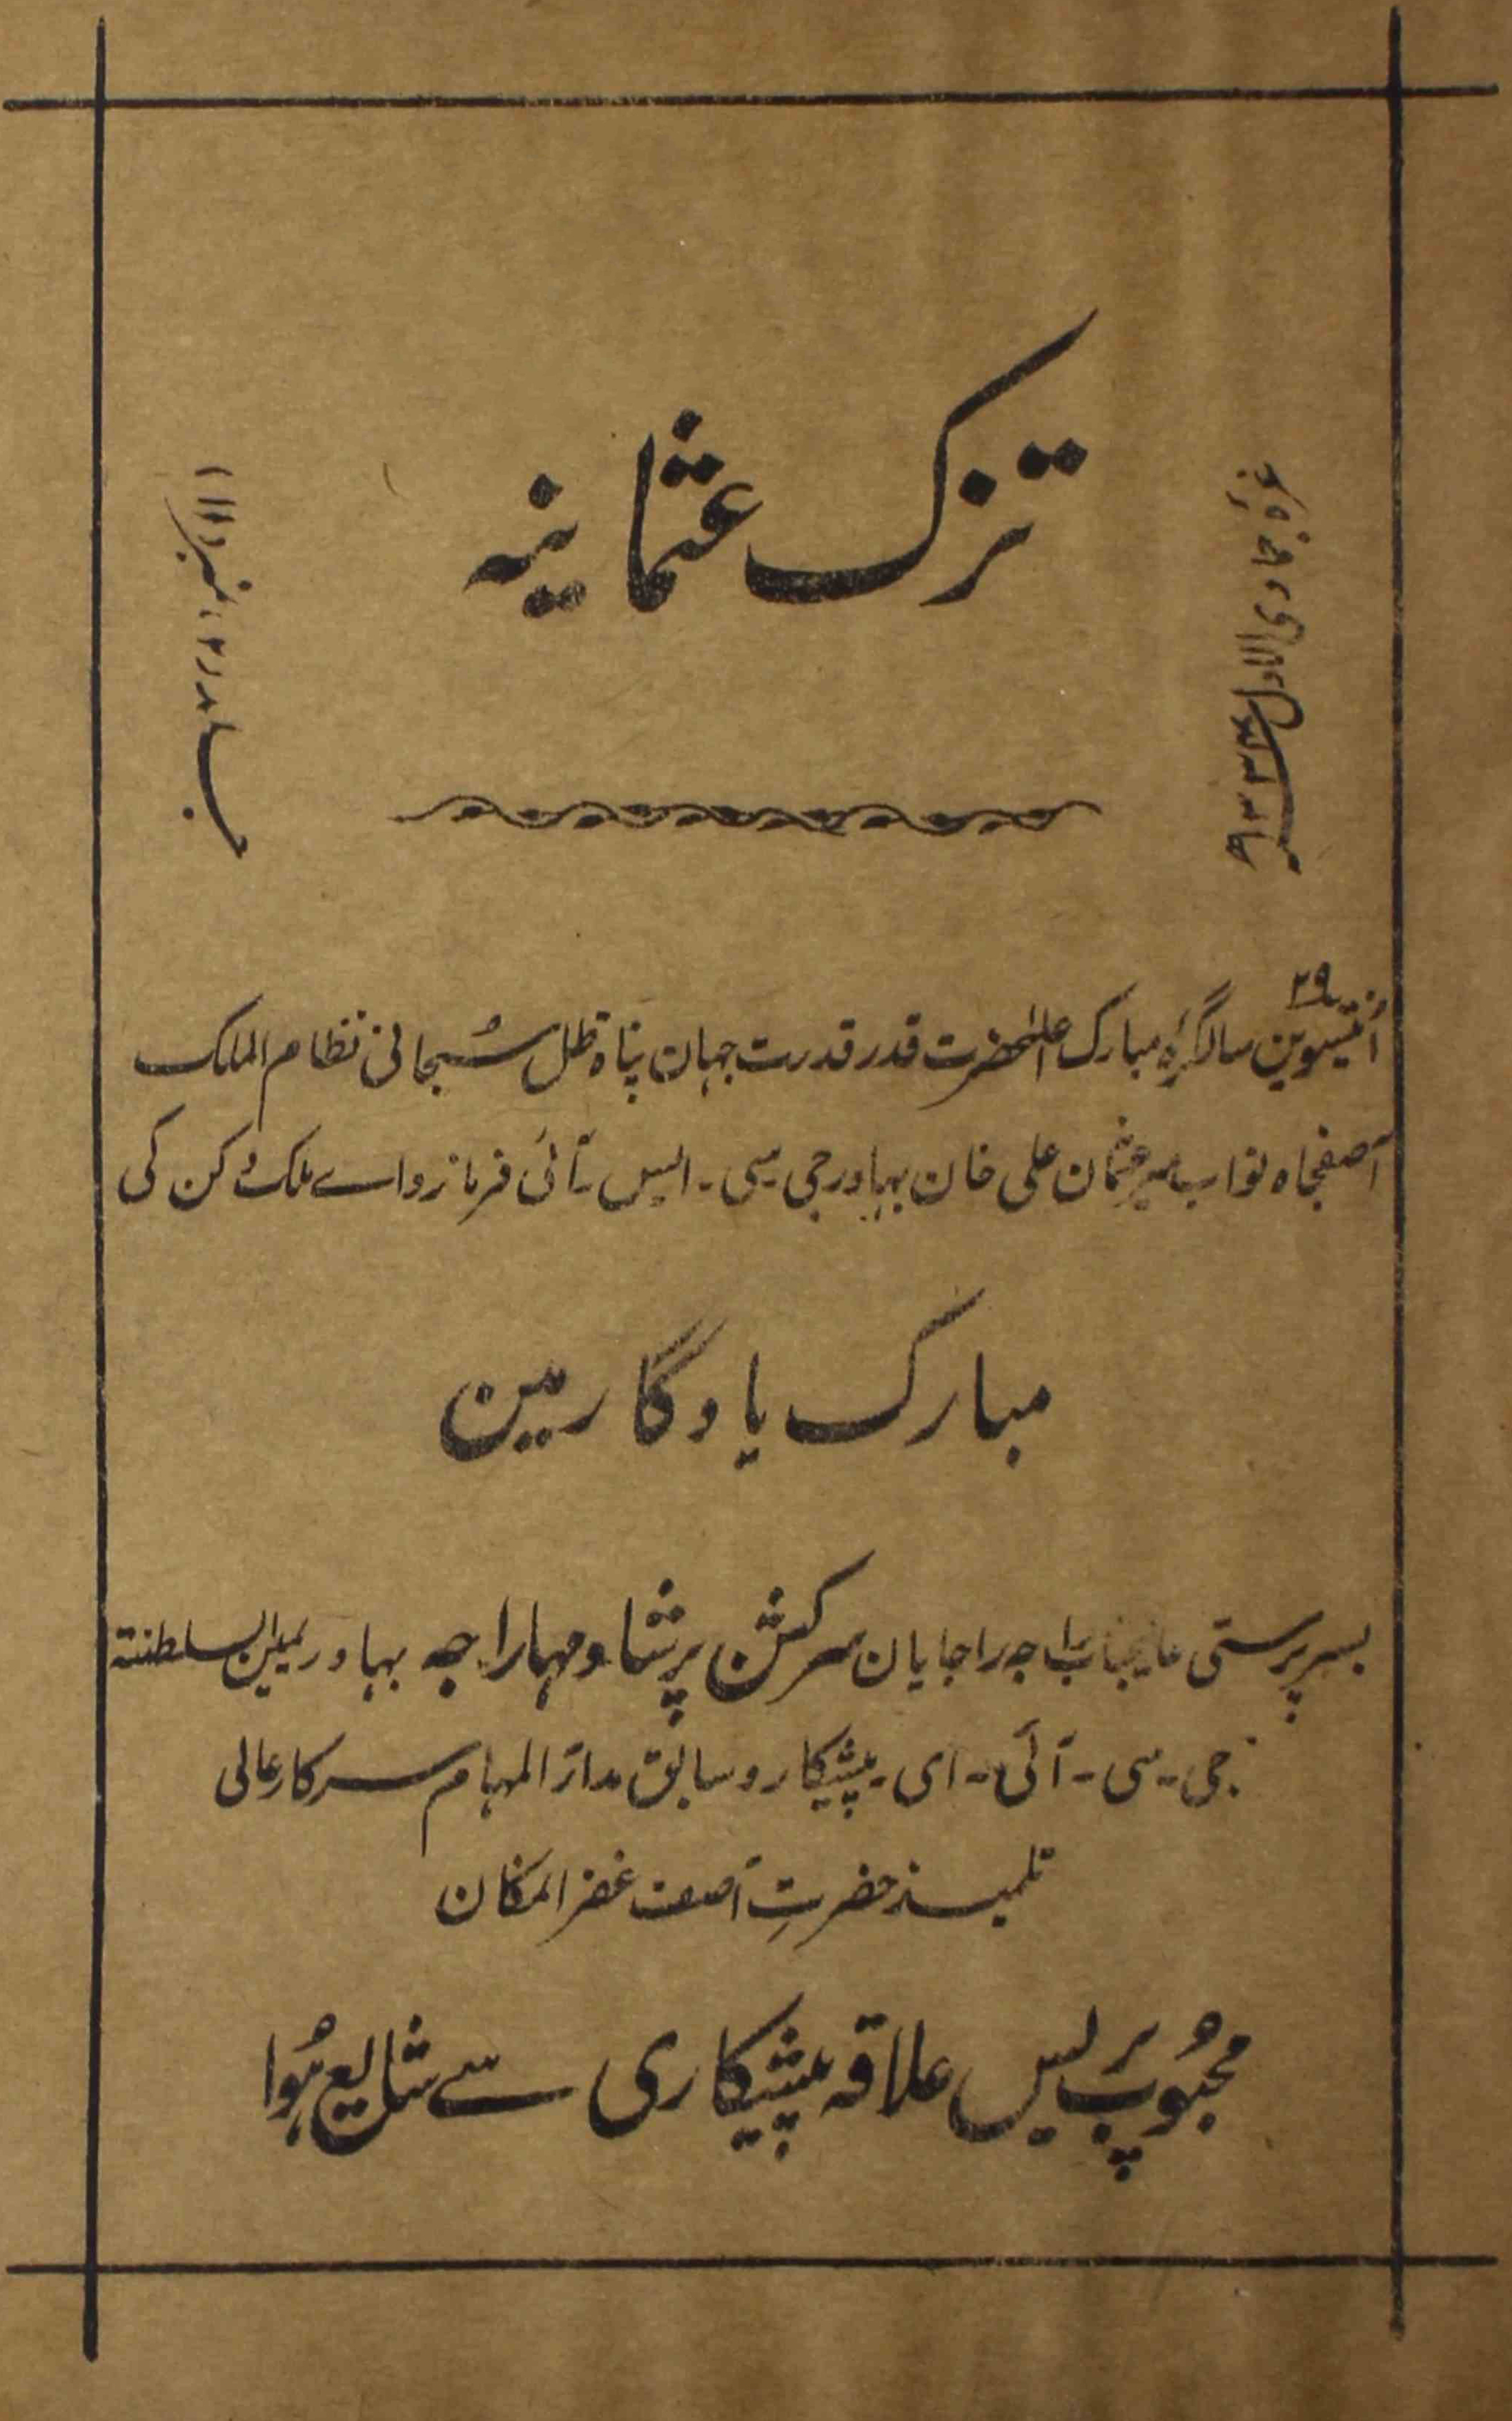 تزک عثمانیہ
غرہ جمادی الاول ۱۳۳۴
جلد ۲، نمبر (۱۱)
۲۹
اُنتیسوین سالگرہ مبارک اعلٰحضرت قدر قدرت جہان پناہ ظل سُبحانی نظام الملک
آصفجاہ نواب میر عثمان علی خان بہادر جی ۔ سی ۔ ایس ۔ آئی فرمانروائے ملک دکن کی
مبارک یادگار مین
بسر پرستی عالیجناب راجہ راجایان سرکشن پرشاد مہاراجہ بہادر یمین السلطنتہ
جی ۔ سی ۔ آئی ۔ ای ۔ پیشکار و سابق مدار المہام سرکار عالی
تلمیذ حضرتِ آصف غفر المکان
محبُوب پریس علاقہ پیشکاری سے شایع ہُوا